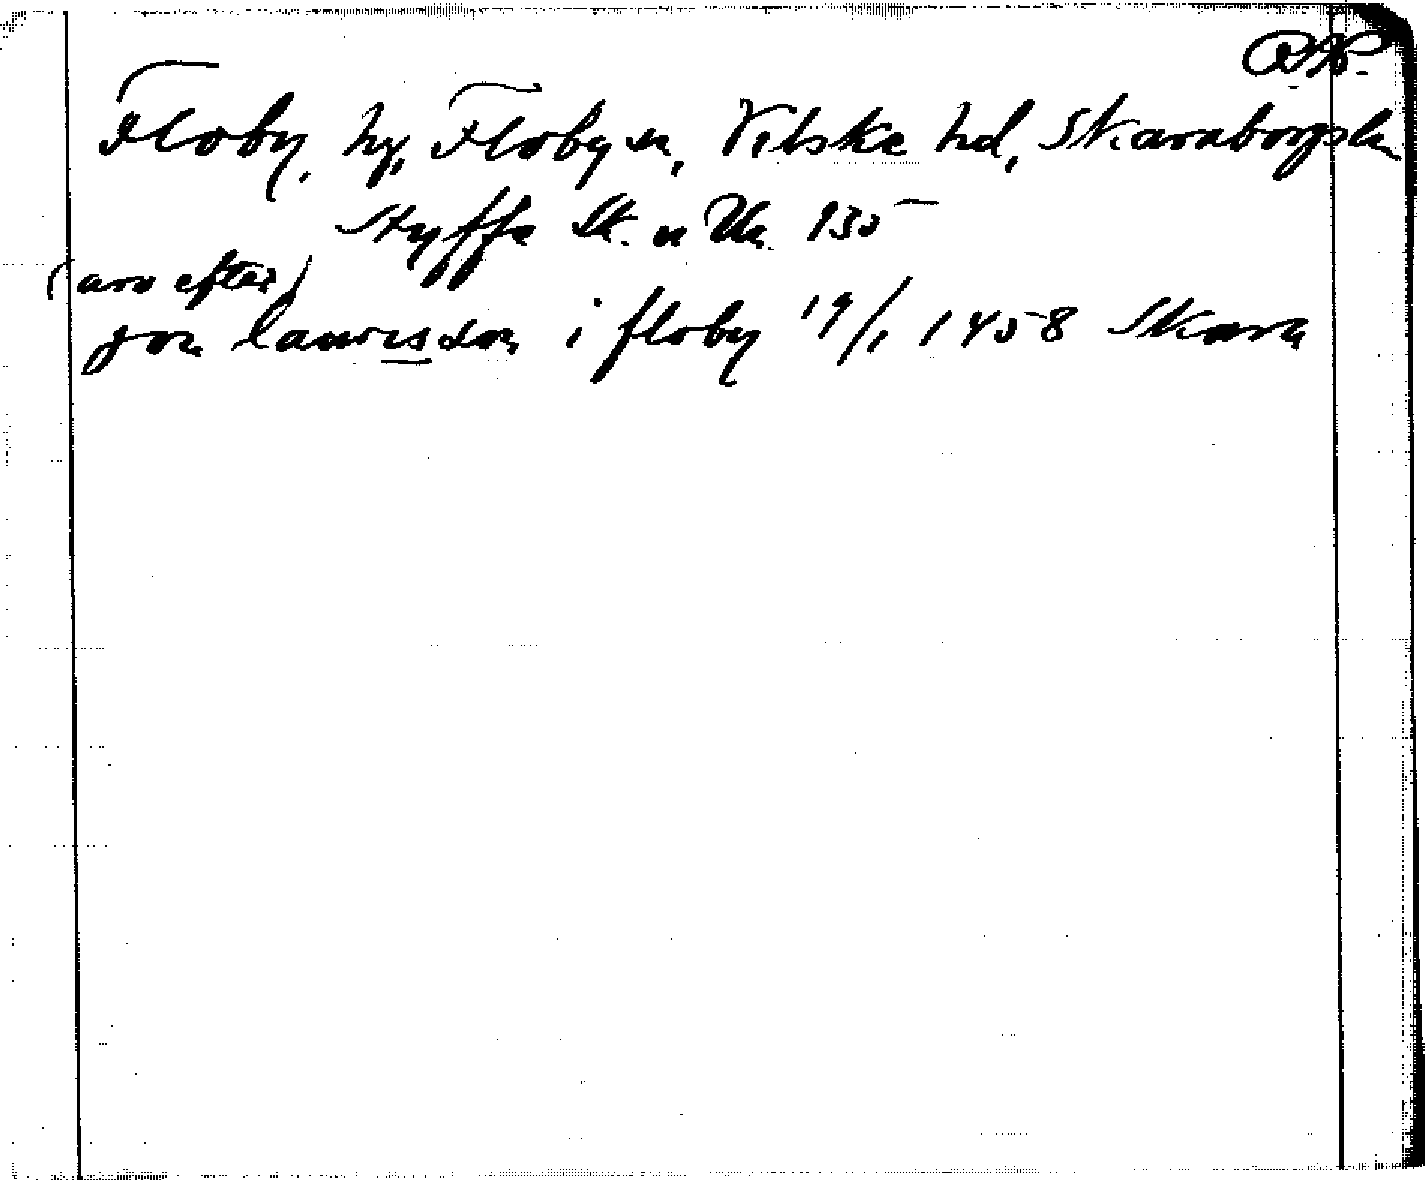 Floby, by, Floby sn, Vilske hd, Skaraborgs län
Styffe Sk. u Un. 135
(arv efter)
jon lawrisson i floby 19/1 1458 Skara